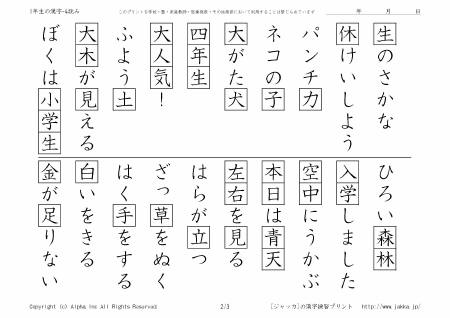 1年生の漢字-4読み
このプリントを学校・塾・家庭教師・医療機関・その他教育において利用することは禁じられています
年　月　日
生のさかな
休けいしよう
パンチ力
ネコの子
大がた犬
四年生
大人気！
ふよう土
大木が見える
ぼくは小学生
ひろい森林
入学しました
空中にうかぶ
本日は青天
左右を見る
はらが立つ
ざっ草をぬく
はく手をする
白いをきる
金が足りない
Copyright (c) Alpha.Inc All Rights Reserved.
2/3
[ジャッカ]の漢字練習プリント　http://www.jakka.jp/